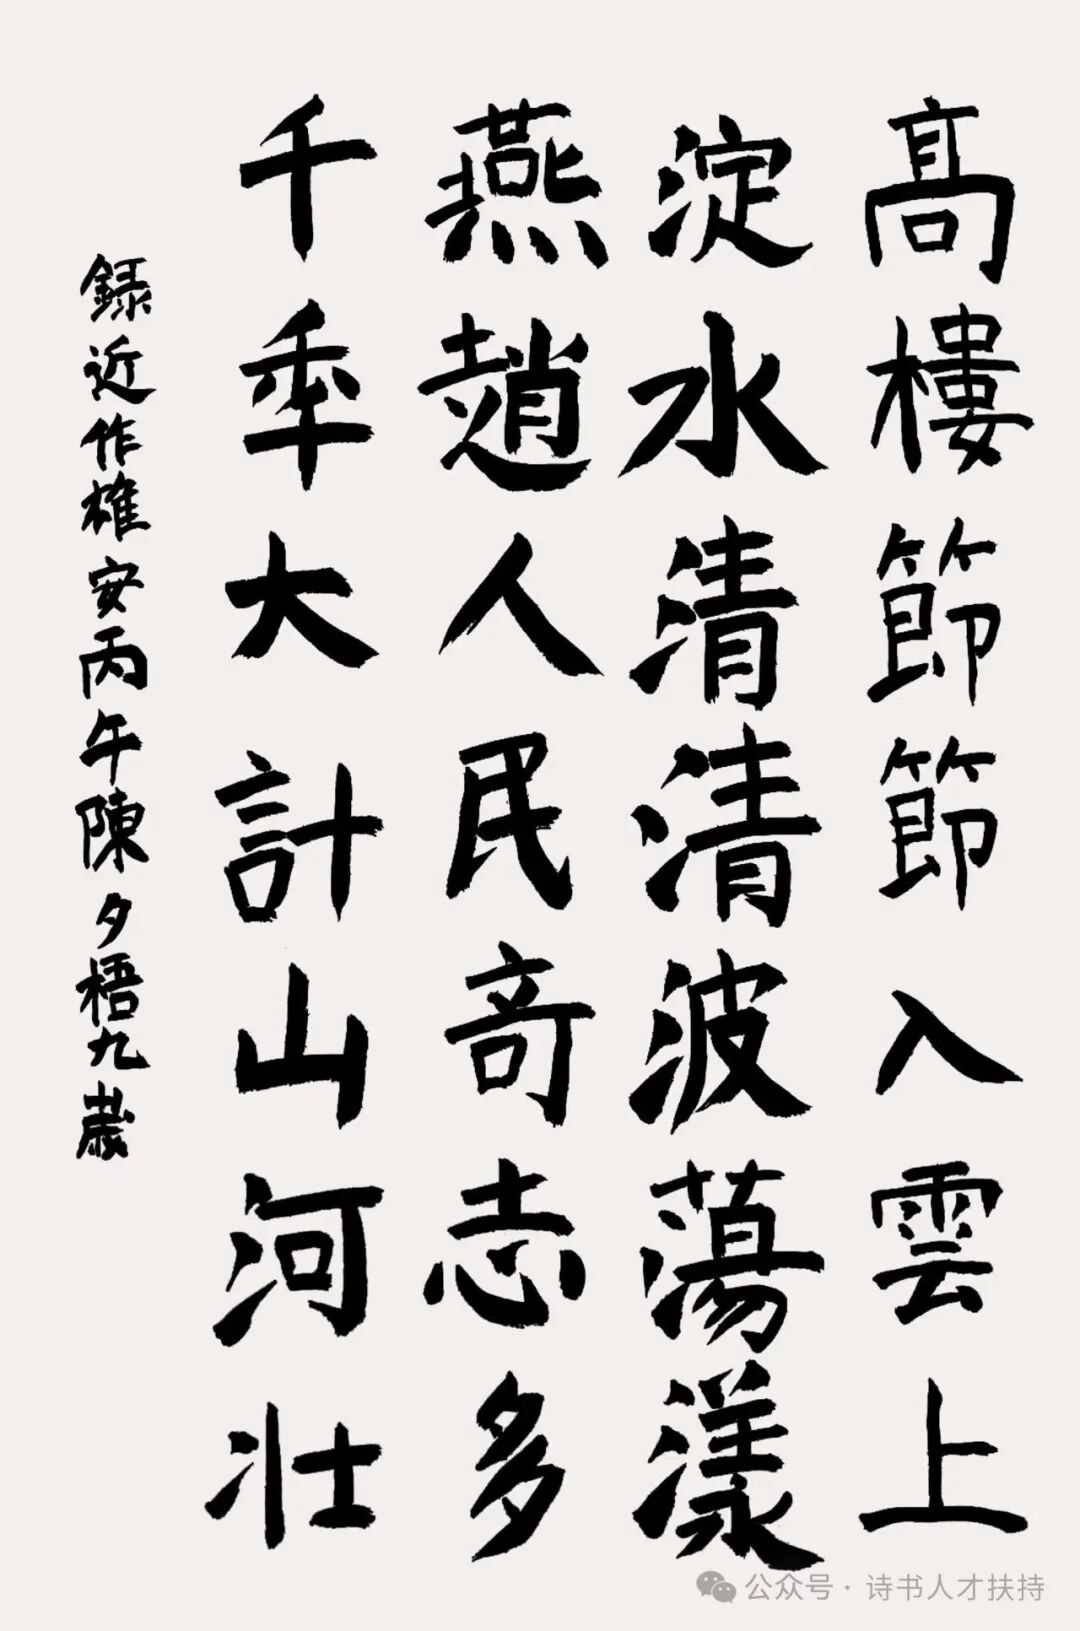 高樓節節入雲上
淀水清清波蕩漾
燕趙人民奇志多
千年大計山河壯
錄近作雄安丙午陳夕梧九歲
公众号·诗书人才扶持